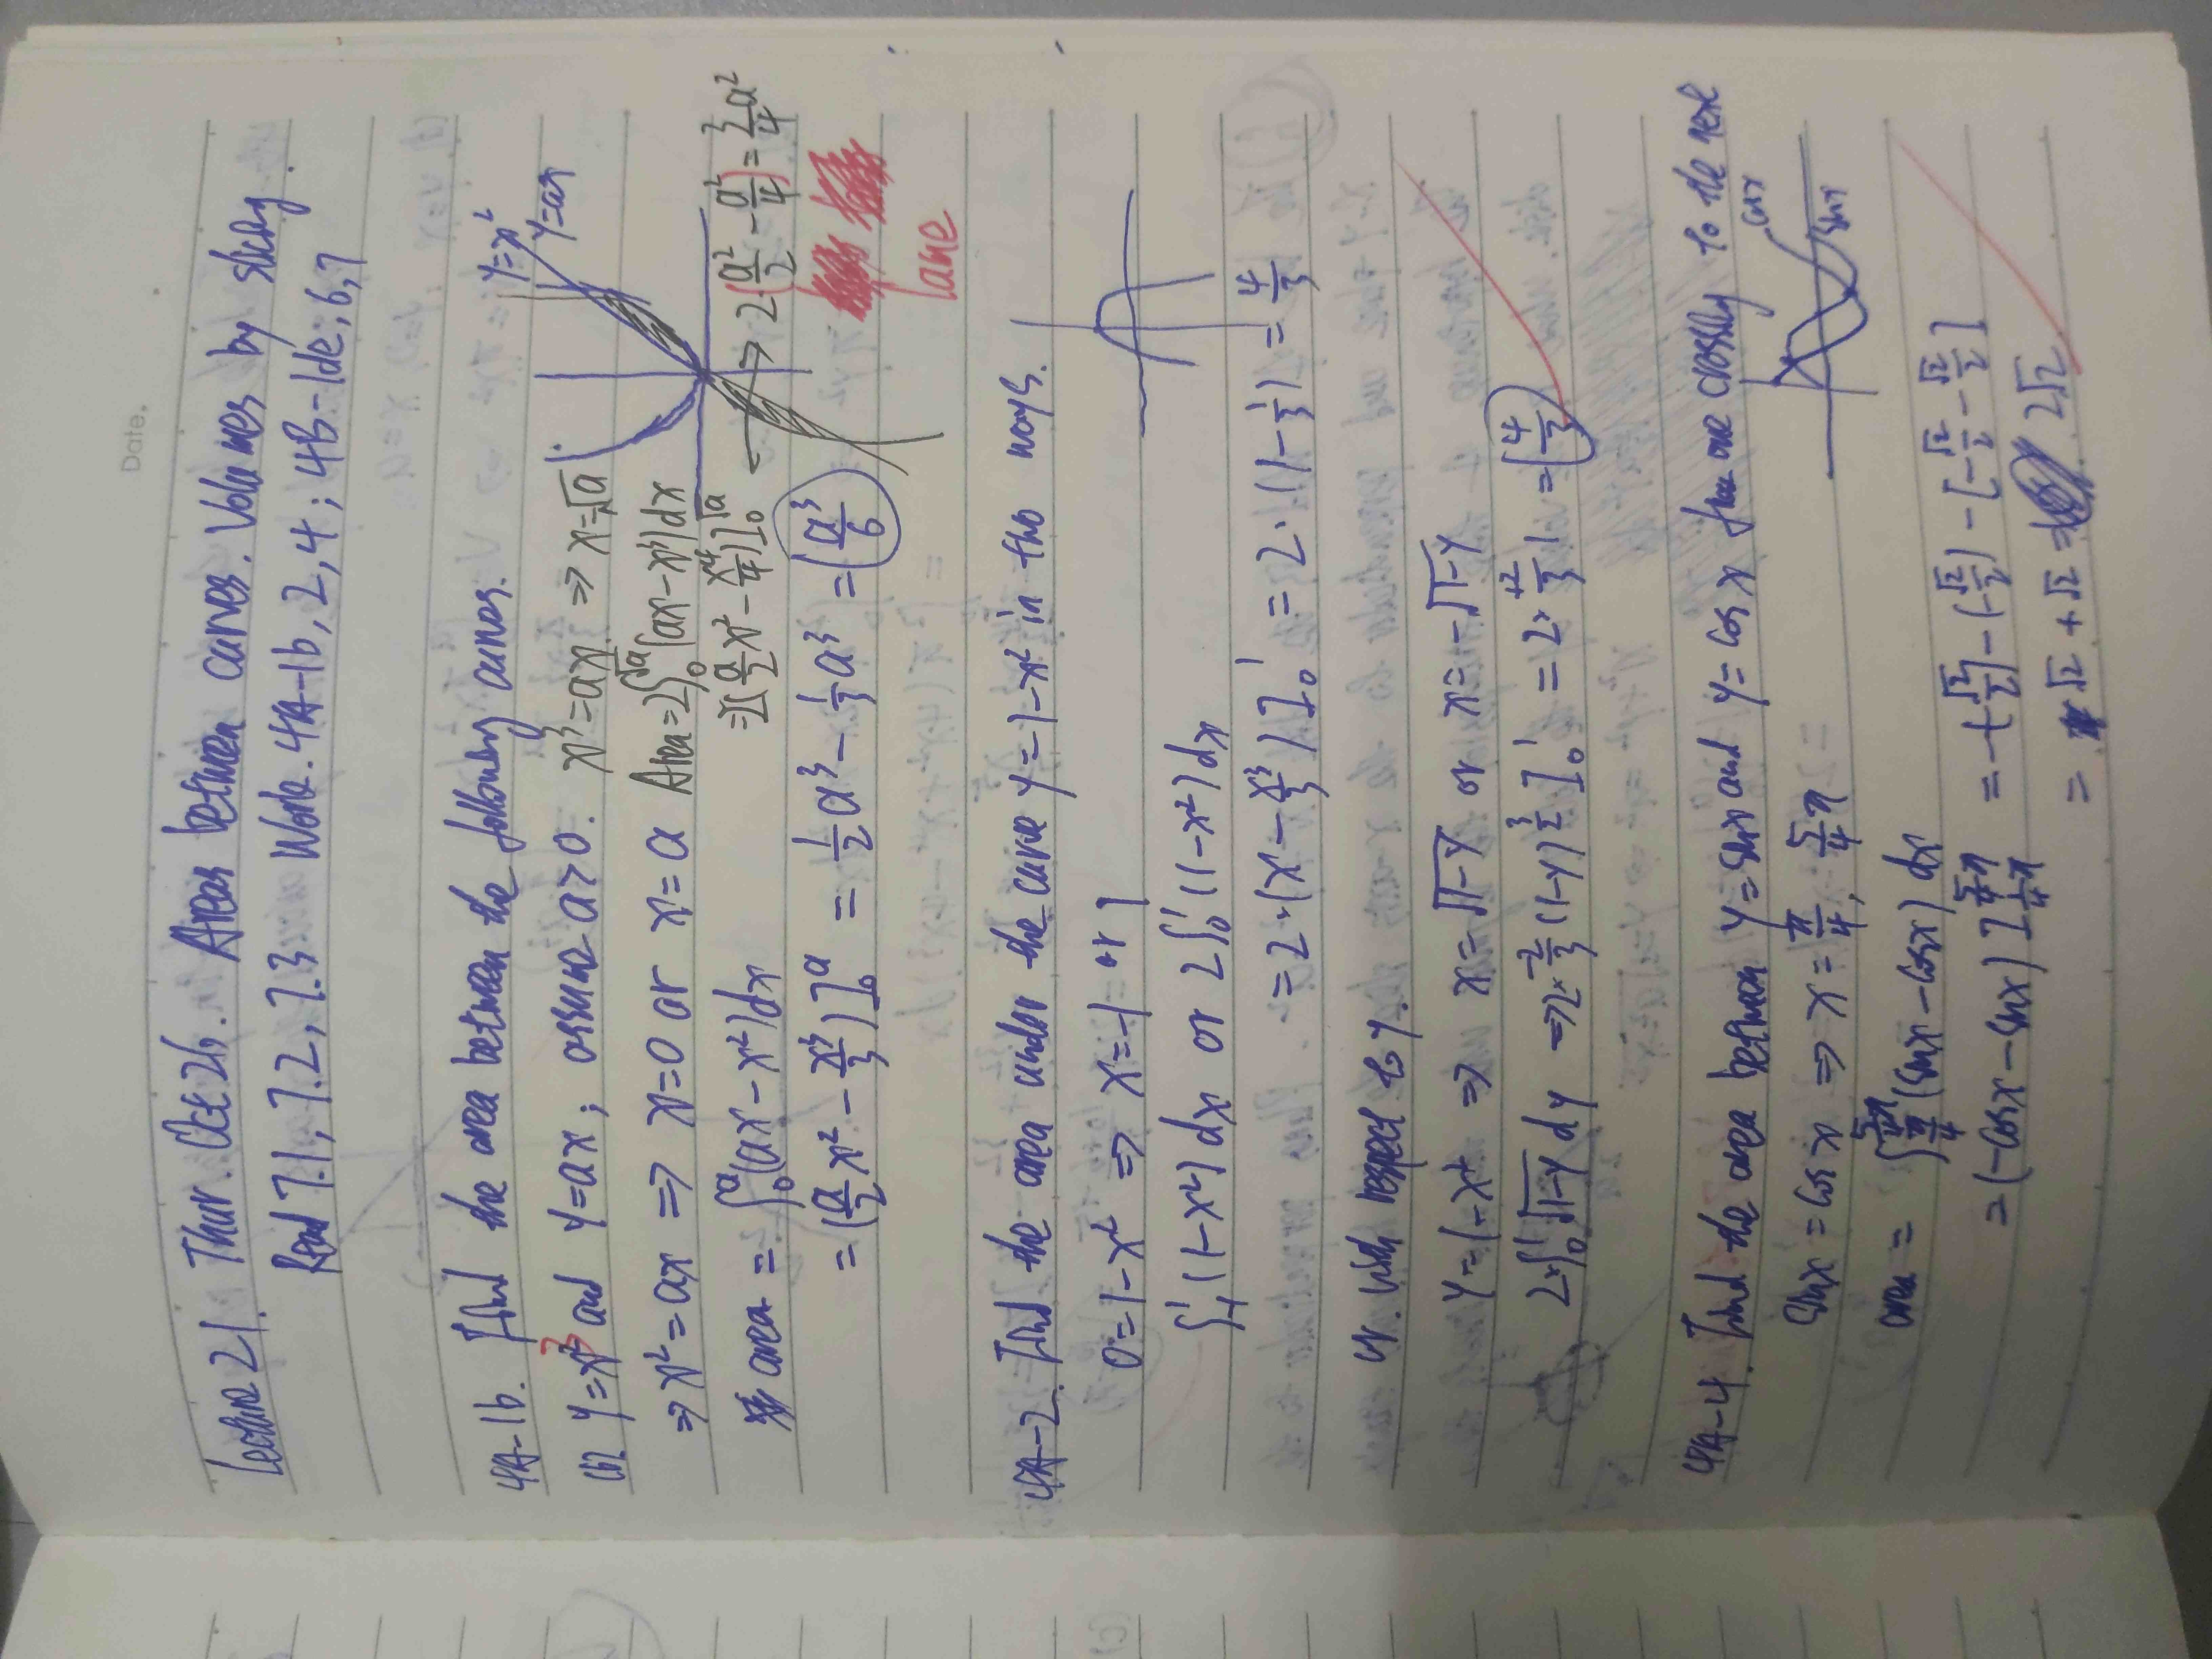 Date.
Lecture 21. Thur. Oct 26. Areas between curves. Volumes by slicing.
Read 7.1, 7.2, 7.3 Work. 4A-1b, 2, 4; 4B-1de, 6, 7
4A-1b. Find the area between the following curves.
(b) y=x³ and y=ax; assume a>0.
x³=ax ⇒ x=√a
y=x²
y=ax
⇒ x²=ax ⇒ x=0 or x=a
Area=2∫₀^√a (ax-x³)dx
area = ∫₀^a (ax-x²)dx
=2[(a/2)x²-x⁴/4)]₀^√a → 2(a²/2-a²/4)=2/4 a²
=(a/2 x² - x³/3)]₀^a = 1/2 a³ - 1/3 a³ = (a³/6)
4A-2. Find the area under the curve y=1-x² in two ways.
0=1-x² ⇒ x=-1 or 1
∫₋₁¹ (1-x²)dx or 2∫₀¹(1-x²)dx
=2·(x-x³/3)]₀¹ =2·(1-1/3)=4/3
with respect to y.
y=1-x² ⇒ x=√1-y or x=-√1-y
2×∫₀¹√1-y dy ⇒2×-2/3(1-y)^3/2]₀¹ = 2×+2/3 = (4/3)
4A-4. Find the area between y=sinx and y=cosx from one crossing to the next
sinx=cosx ⇒ x=π/4, 5/4π
cosx
sinx
area = ∫_π/4^5/4π (sinx-cosx)dx
=(-cosx-sinx)]_1/4π^5/4π =-(-√2/2)-(-√2/2)-[-√2/2-√2/2]
= √2+√2 = 2√2